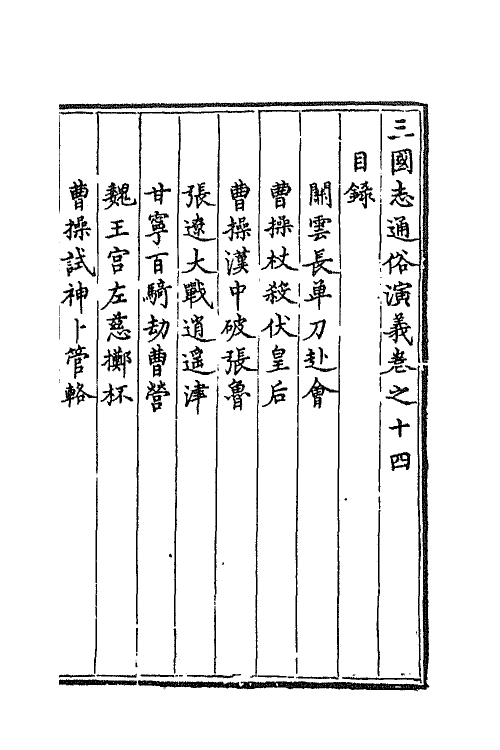 三國志通俗演義卷之十四
目錄
關雲長單刀赴會
曹操杖殺伏皇后
曹操漢中破張魯
張遼大戰逍遥津
甘寧百騎劫曹營
魏王宫左慈擲杯
曹操試神卜管輅